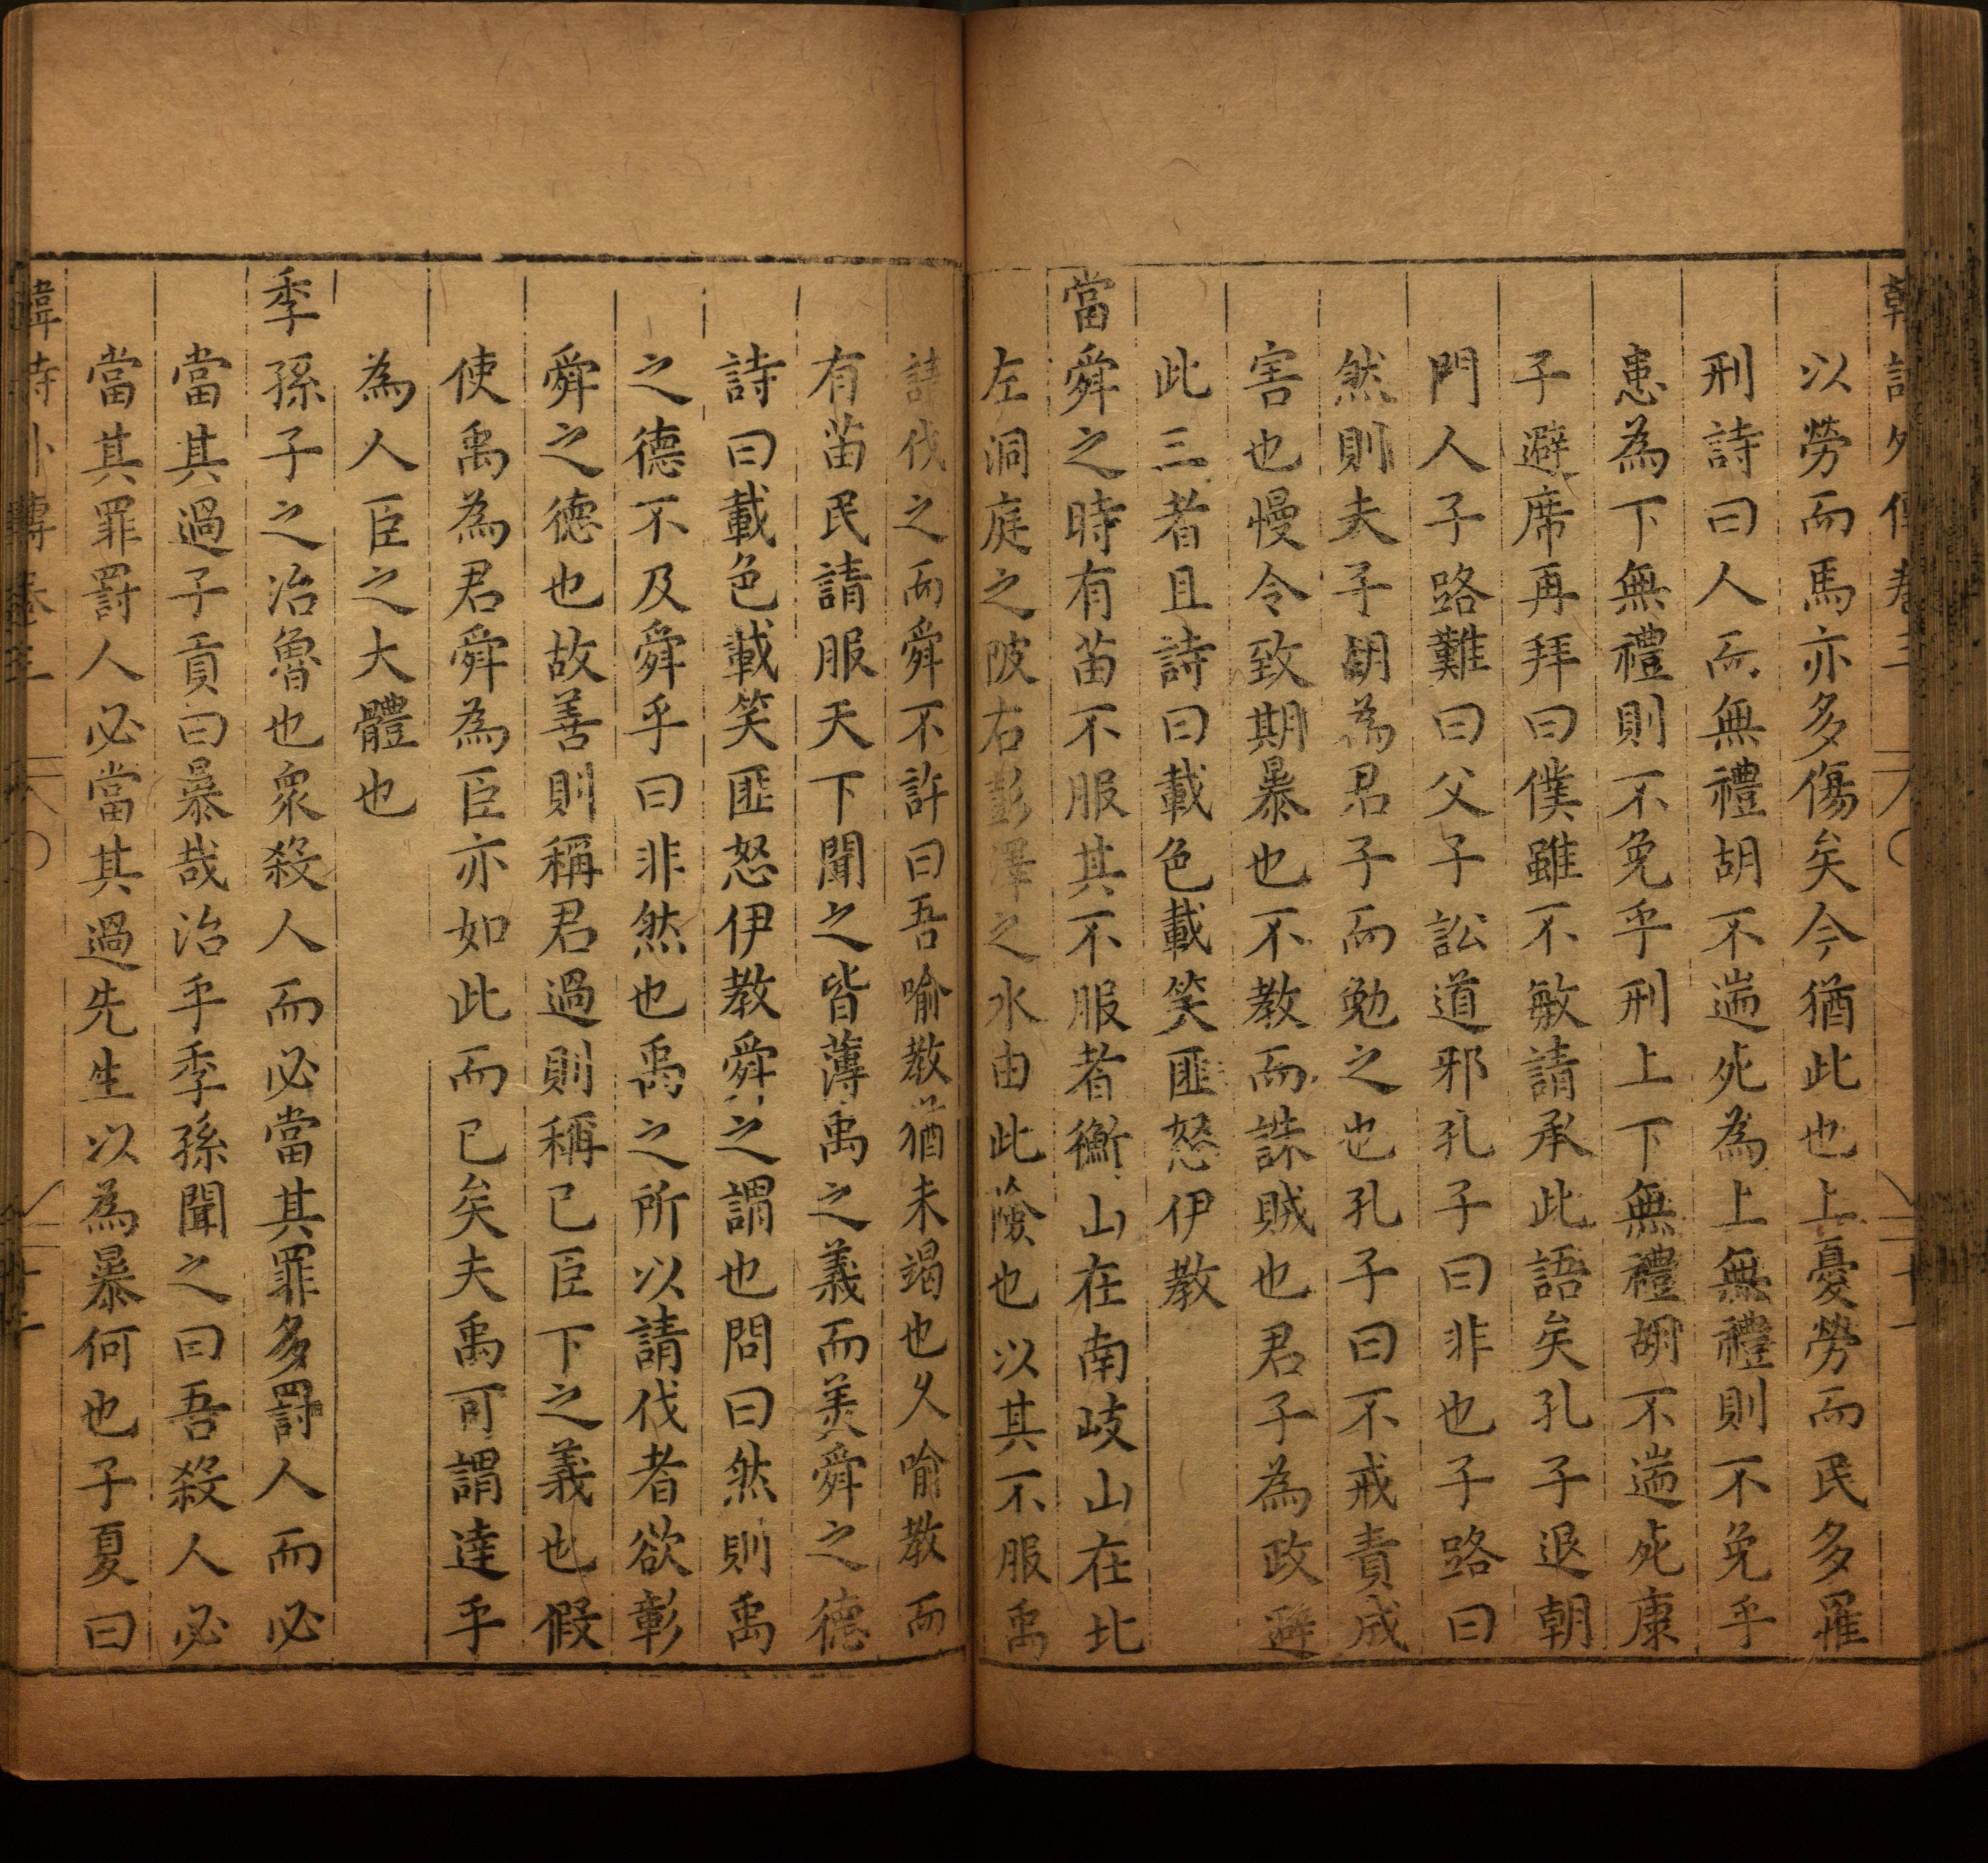 韓詩外傳卷三
以勞而馬亦多傷矣今猶此也上憂勞而民多罹
刑詩曰人而無禮胡不遄死為上無禮則不免乎
患為下無禮則不免乎刑上下無禮胡不遄死康
子避席再拜曰僕雖不敏請承此語矣孔子退朝
門人子路難曰父子訟道邪孔子曰非也子路曰
然則夫子胡為君子而勉之也孔子曰不戒責成
害也慢令致期暴也不教而誅賊也君子為政避
此三者且詩曰載色載笑匪怒伊教
當舜之時有苗不服其不服者衡山在南岐山在北
左洞庭之陂右彭澤之水由此險也以其不服禹
請伐之而舜不許曰吾喻教猶未竭也久喻教而
有苗民請服天下聞之皆薄禹之義而美舜之德
詩曰載色載笑匪怒伊教舜之謂也問曰然則禹
之德不及舜乎曰非然也禹之所以請伐者欲彰
舜之德也故善則稱君過則稱已臣下之義也假
使禹為君舜為臣亦如此而已矣夫禹可謂達乎
為人臣之大體也
季孫子之治魯也衆殺人而必當其罪多罰人而必
當其過子貢曰暴哉治乎季孫聞之曰吾殺人必
當其罪罰人必當其過先生以為暴何也子夏曰
韓詩外傳卷三